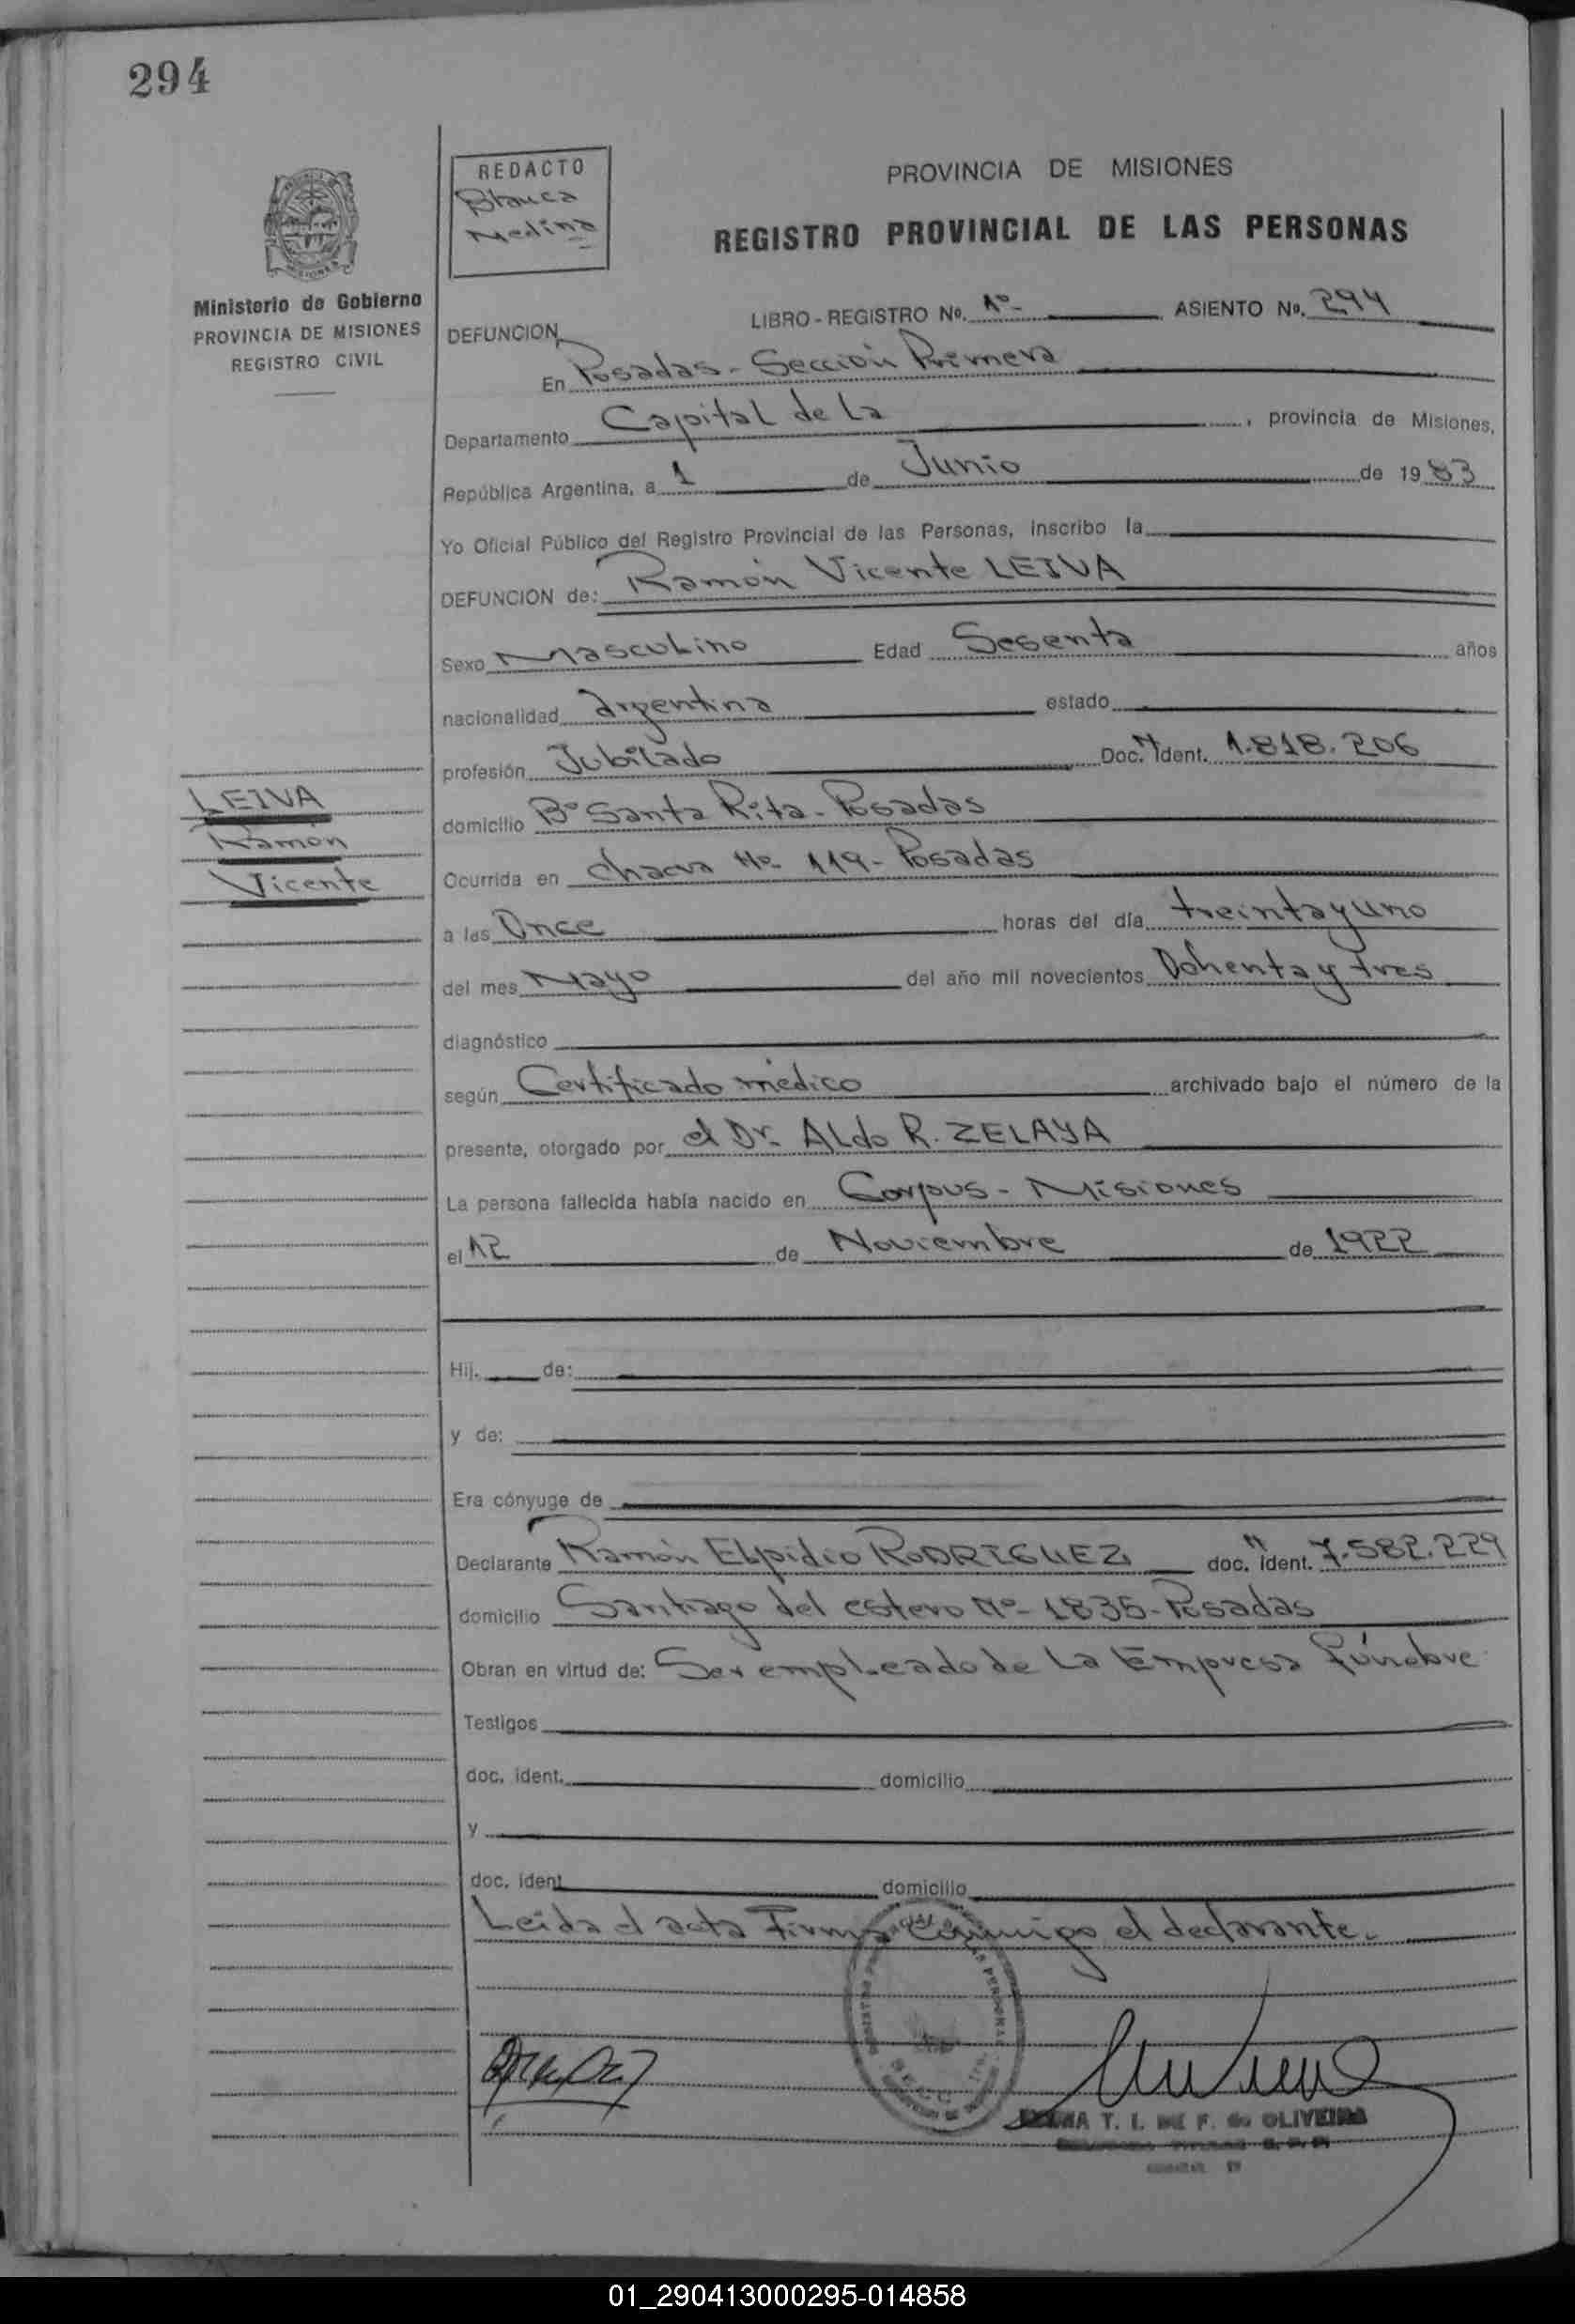 294
REDACTO
Blanca
Medina
PROVINCIA DE MISIONES
REGISTRO PROVINCIAL DE LAS PERSONAS
Ministerio de Gobierno
PROVINCIA DE MISIONES
REGISTRO CIVIL
LIBRO - REGISTRO No. 1º - ASIENTO No. 294
DEFUNCION
En Posadas - Sección Primera
Departamento Capital de La , provincia de Misiones,
República Argentina, a 1 de Junio de 1983
Yo Oficial Público del Registro Provincial de las Personas, inscribo la
DEFUNCION de: Ramón Vicente LEIVA
Sexo Masculino Edad Sesenta años
nacionalidad argentina estado
profesión Jubilado Doc. M Ident. 1.818.206
domicilio Bº Santa Rita - Posadas
Ocurrida en Chacra Nº 119 - Posadas
a las Once horas del día treinta y uno
del mes Mayo del año mil novecientos Ochenta y tres
diagnóstico
según Certificado médico archivado bajo el número de la
presente, otorgado por el Dr. Aldo R. ZELAYA
La persona fallecida había nacido en Corpus - Misiones
el 12 de Noviembre de 1922
LEIVA
Ramón
Vicente
Hij. de:
y de:
Era cónyuge de
Declarante Ramón Elpidio RODRIGUEZ doc. M ident. 7.582.229
domicilio Santiago del estero Nº 1835 - Posadas
Obran en virtud de: Ser empleado de La Empresa Fúnebre
Testigos
doc. ident. domicilio
y
doc. ident domicilio
Leída el acta Firma Conmigo el declarante.
T. I. DE F. de OLIVEIRA
01_290413000295-014858